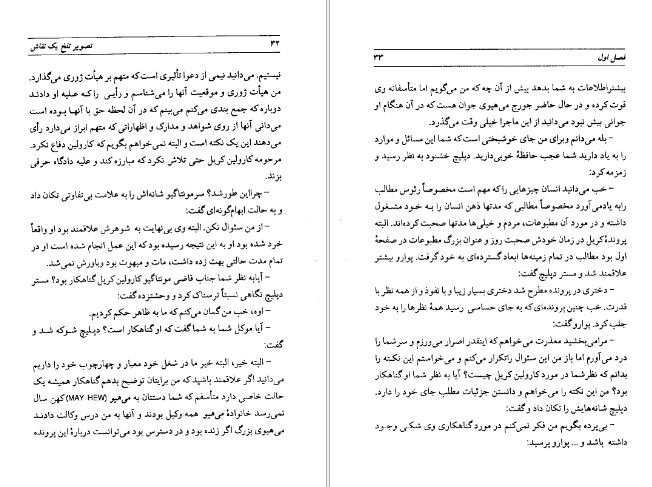 ۳۲ تصویر تلخ یک نقاش
نیستیم. می‌دانید نیمی از دعوا تأثیری است که متهم بر هیأت ژوری می‌گذارد.
من هیأت ژوری و موقعیت آنها را می‌شناسم و رأیی را که علیه او دادند
دوباره که جمع بندی می‌کنم می‌بینم که در آن لحظه حق با آنها بوده است
می‌دانی آنها از روی شواهد و مدارک و اظهاراتی که متهم ابراز می‌دارد رأی
می‌دهند این یک نکته است و البته نمی‌خواهم بگویم که کارولین دفاع نکرد.
مرحومه کارولین کریل حتی تلاش نکرد که مبارزه کند و علیه دادگاه حرفی
بزند.
– چرا این طور شد؟ سرمونتاگیو شانه‌اش را به علامت بی‌تفاوتی تکان داد
و به حالت ابهام‌گونه‌ای گفت:
– از من سئوال نکن. البته وی بی‌نهایت به شوهرش علاقمند بود او واقعاً
خرد شده بود او به این نتیجه رسیده بود که این عمل انجام شده است او در
تمام مدت حالتی بهت زده داشت، مات و مبهوت بود و باورش نمی‌شد.
– آیا به نظر شما جناب قاضی مونتاگیو کارولین کریل گناهکار بود؟ مستر
دپلیچ نگاهی نسبتاً ترسناک کرد و وحشتزده گفت:
– اوه، خب من گمان می‌کنم که ما به ظاهر حکم کردیم.
– آیا موکل شما به شما گفت که او گناهکار است؟ دپلیچ شوکه شد و
گفت:
– البته خیر، البته خیر ما در شغل خود معیار و چهارچوب خود را داریم
می‌دانید اگر علاقمند باشید که من برایتان توضیح بدهم گناهکار همیشه یک
حالت خاصی دارد متأسفم که شما دستتان به می‌هیو (MAY HEW) کهن سال
نمی‌رسد خانوادهٔ می‌هیو همه وکیل بودند و آنها به من درس وکالت دادند
می‌هیوی بزرگ اگر زنده بود و در دسترس بود می‌توانست دربارهٔ این پرونده
فصل اول ۳۳
بیشتر اطلاعات به شما بدهد بیش از آن چه که من می‌گویم اما متأسفانه وی
فوت کرده و در حال حاضر جورج می‌هیوی جوان هست که در آن هنگام او
جوانی بیش نبود می‌دانید از این ماجرا خیلی وقت می‌گذرد.
– بله می‌دانم و برای من جای خوشبختی است که شما این مسائل و موارد
را به یاد دارید شما عجب حافظهٔ خوبی دارید. دپلیچ خشنود به نظر رسید و
زمزمه کرد:
– خب می‌دانید انسان چیزهایی را که مهم است مخصوصاً رئوس مطالب
را به یاد می‌آورد مخصوصاً مطالبی که مدتها ذهن انسان را به خود مشغول
داشته و در مورد آن مطبوعات، مردم و خیلی‌ها مدتها صحبت کرده‌اند. البته
پروندهٔ کریل در زمان خودش صحبت روز و عنوان بزرگ مطبوعات در صفحهٔ
اول بود مطالب در تمام زمینه‌ها ابعاد گسترده‌ای به خود گرفت. پوارو بیشتر
علاقمند شد و مستر دپلیچ گفت:
– دختری در پرونده مطرح شد دختری بسیار زیبا و با نفوذ و از همه نظر با
قدرت. خب چنین پرونده‌ای که به جای حساسی رسید همهٔ نظرها را به خود
جلب کرد. پوارو گفت:
– مرا می‌بخشید معذرت می‌خواهم که اینقدر اصرار می‌ورزم و سر شما را
درد می‌آورم اما باز من این سئوال را تکرار می‌کنم و می‌خواستم این نکته را
بدانم که نظر شما در مورد کارولین کریل چیست؟ آیا به نظر شما او گناهکار
بود؟ من این نکته را می‌خواهم و دانستن جزئیات مطلب جای خود را دارد.
دپلیچ شانه‌هایش را تکان داد و گفت:
– بی‌پرده بگویم من فکر نمی‌کنم در مورد گناهکاری وی شکی وجود
داشته باشد و ... پوارو پرسید: